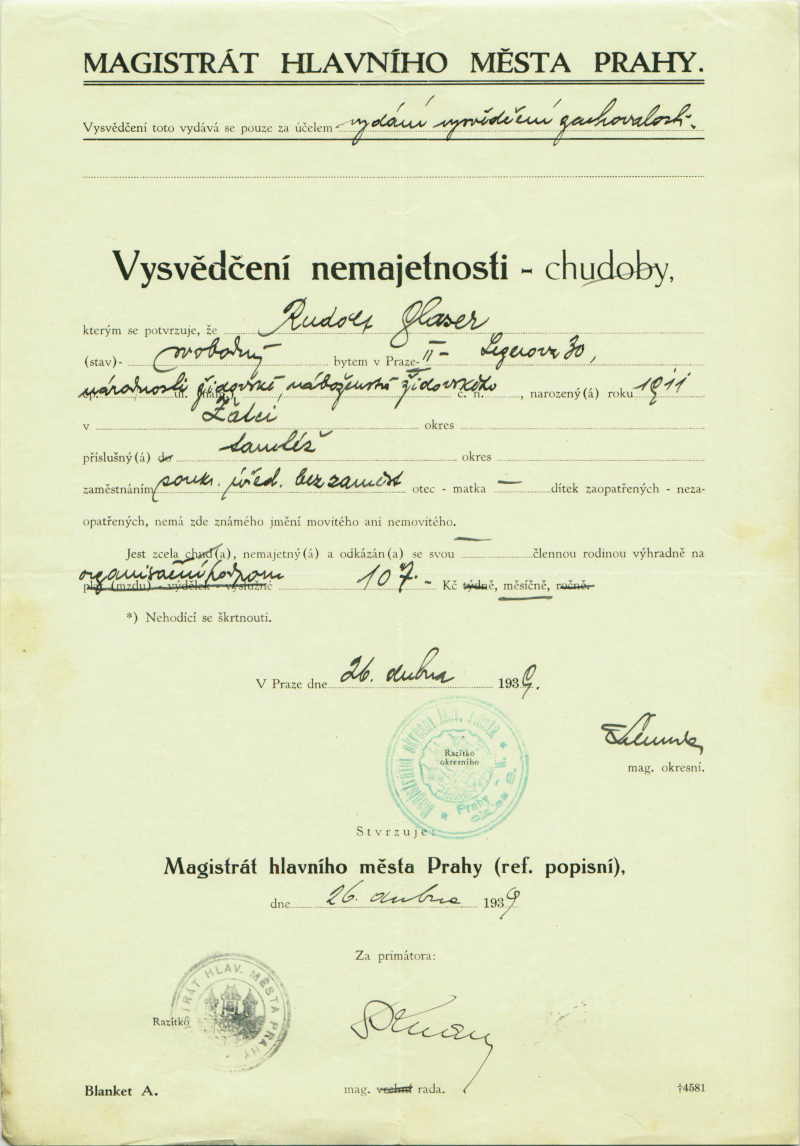 MAGISTRÁT HLAVNÍHO MĚSTA PRAHY.
Vysvědčení toto vydává se pouze za účelem vydání vysvědčení zachovalosti.
Vysvědčení nemajetnosti - chudoby,
kterým se potvrzuje, že Rudolf Glaser
(stav)- svobodný bytem v Praze- II - Legerova 30,
národnosti židovské, náboženství židovského č. n. , narozený(á) roku 1911
v Žatci okres
příslušný(á) do tamtéž okres
zaměstnáním soukr. úřed. bez zaměst otec - matka — dítek zaopatřených - neza-
opatřených, nemá zde známého jmění movitého ani nemovitého.
Jest zcela chud(a), nemajetný(á) a odkázán(a) se svou — člennou rodinou výhradně na
organisační podporu
plat (mzdu) - výdělek - výslužné 107.- Kč týdně, měsíčně, ročně.
*) Nehodící se škrtnouti.
V Praze dne 26. dubna 1939.
Razítko
okresního
mag. okresní.
Stvrzuje:
Magistrát hlavního města Prahy (ref. popisní),
dne 26. dubna 1939
Za primátora:
MAGISTRÁT HLAV. MĚSTA PRAHY
Razítko
mag. rada.
Blanket A.
†4581